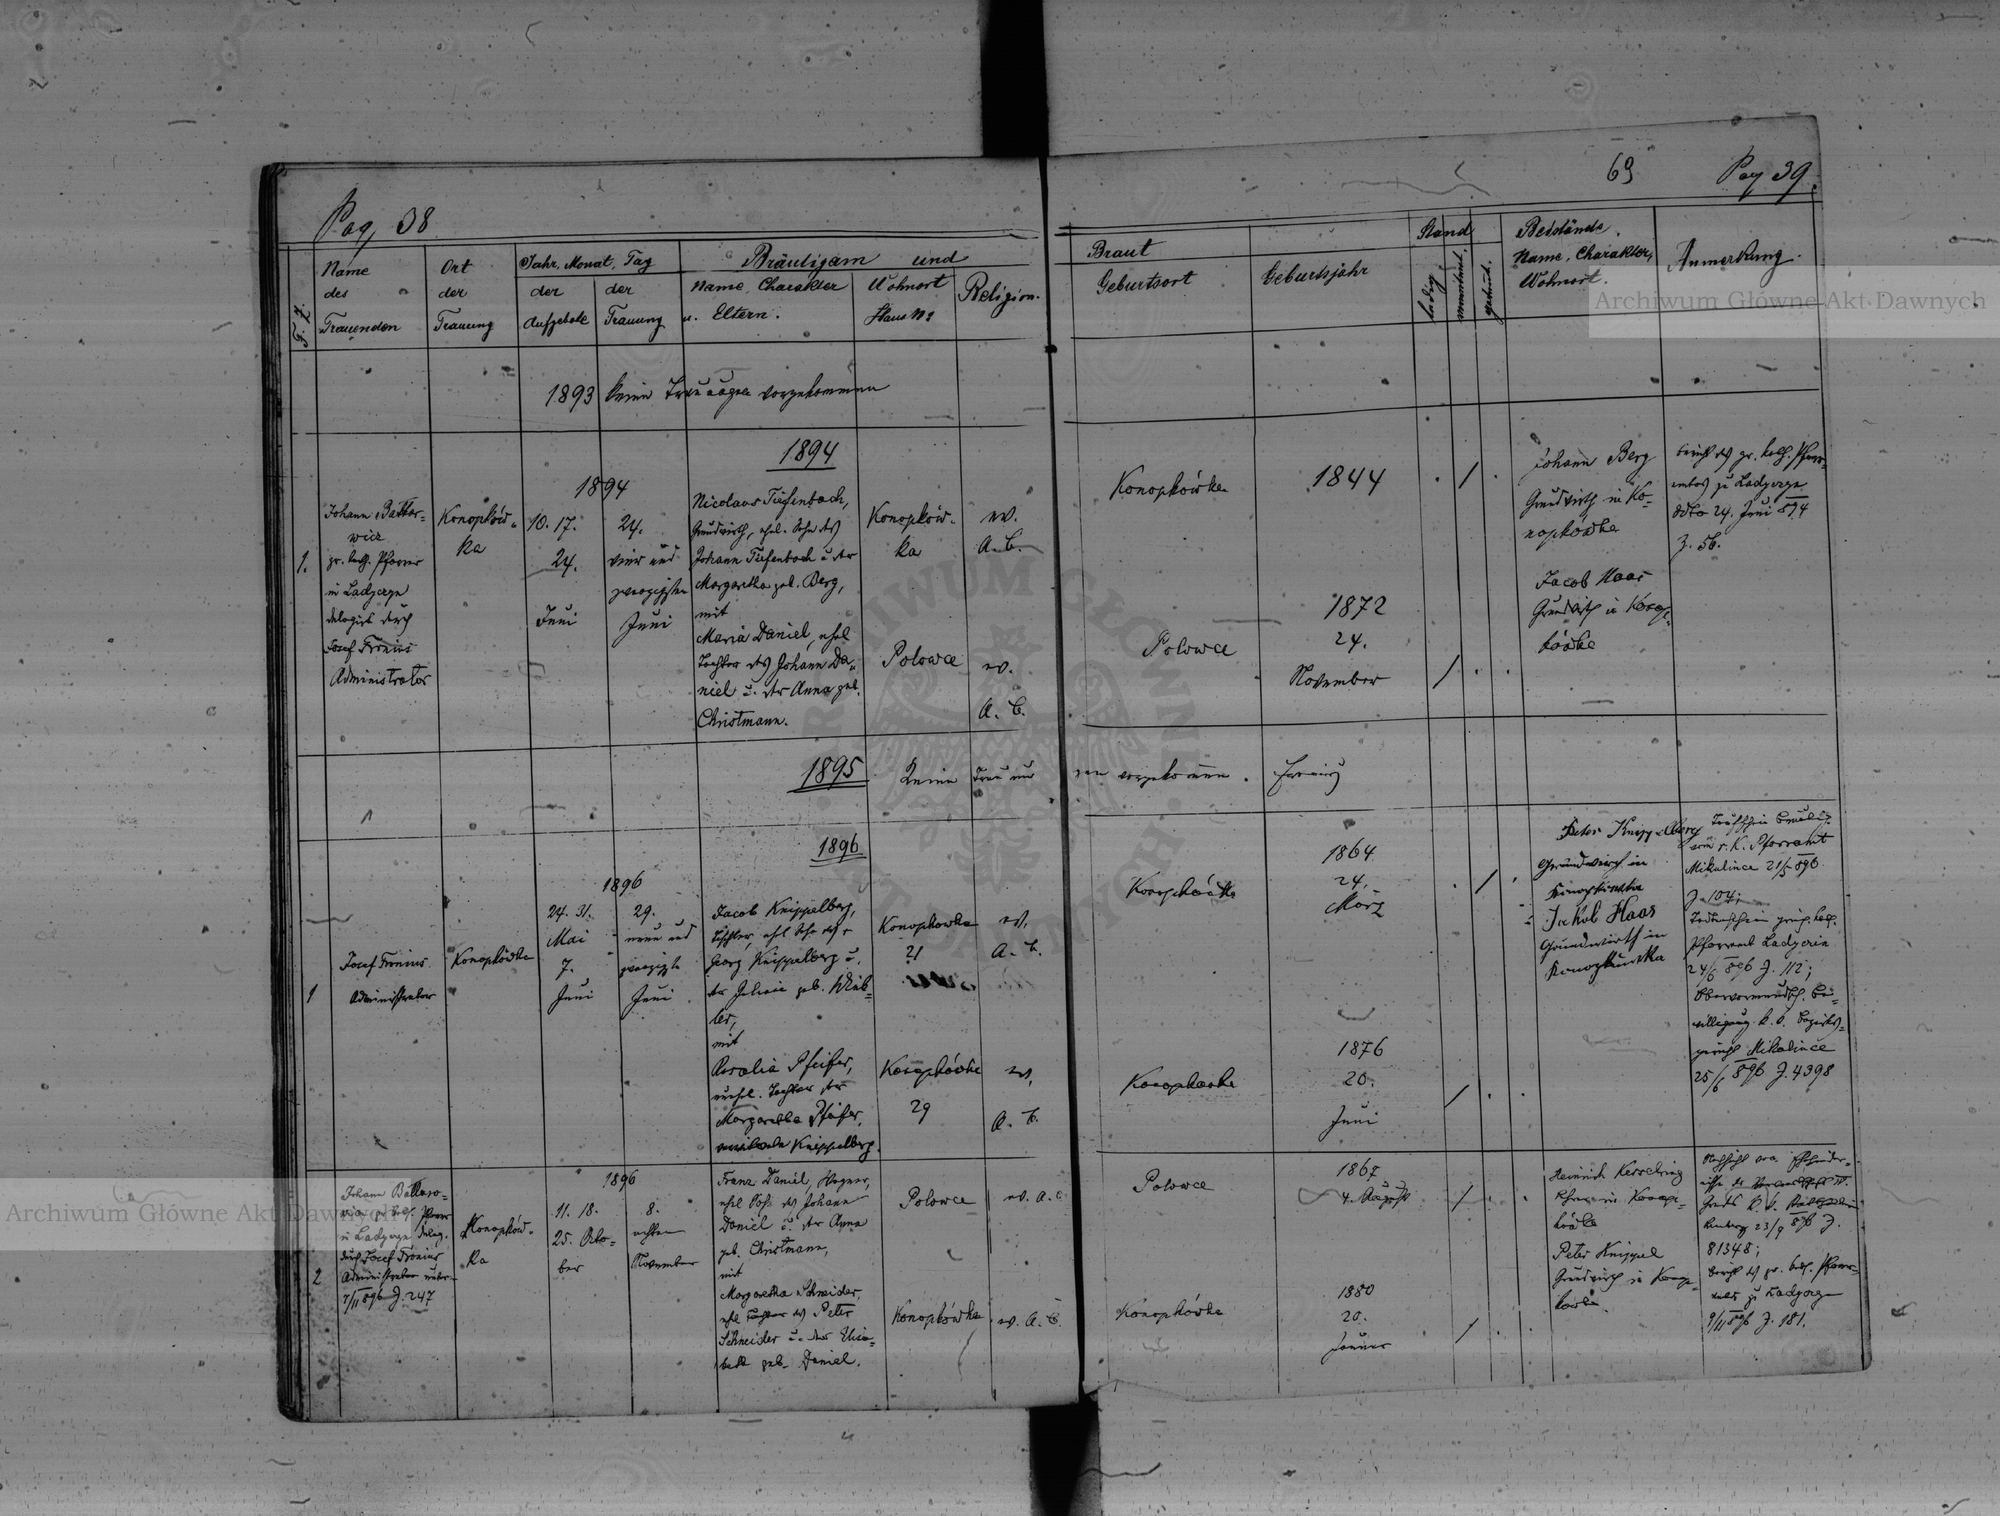 Pag. 38
69
Pag 39.
F. Z.
Name
des
Trauenden
Ort
der
Trauung
Jahr, Monat, Tag
der
Aufgebote
der
Trauung
Bräutigam und
Name, Charakter
u. Eltern.
Wohnort
Haus No
Religion.
Braut
Geburtsort
Geburtsjahr
Stand
ledig
verwitwet.
getrennt.
Beistände.
Name, Charakter,
Wohnort.
Anmerkung.
Archiwum Główne Akt Dawnych
1893 keine Trauungen vorgekommen
1894
1.
Johann
gr. kath. Pfarrer
in Ladyczyn
delegirt durch
Josef Fronius
Administrator
Konopków-
ka
1894
10. 17.
24.
Juni
24.
vier und
zwanzigsten
Juni
Nicolaus Tiefenbach,
Grundwirth, ehel. Sohn des
Johann Tiefenbach u. der
Margaretha geb. Berg,
mit
Maria Daniel, ehel.
Tochter des Johann Da-
niel u. der Anna geb.
Christmann.
Konopków-
ka
Polowce
ev.
A. C.
ev.
A. C.
Konopkówka
Polowce
1844
1872
24.
November
Johann Berg
Grundwirth in Ko-
nopkówka
Jacob Haas
Grundwirth in Konop-
kówka
gr. kath. Pfarr-
amtes zu Ladyczyn
ddto 24. Juni 894
Z. 56.
1895 Keine Trauun
gen vorgekommen. Fronius
1896
1
Josef Fronius
Administrator
Konopkówka
1896
24. 31.
Mai
7.
Juni
29.
neun und
zwanzigsten
Juni
Jacob Knippelberg,
Tischler, ehel. Sohn des
Georg Knippelberg u.
der
mit
Rosalia Pfeifer,
unehel. Tochter der
Margaretha Pfeifer,
Knippelberg.
Konopkówka
21
Konopkówka
29
ev.
A. C.
ev.
A. C.
Konopkówka
Konopkówka
1864
24.
März
1876
20.
Juni
Peter Knippelberg
Grundwirth in
Konopkówka
Jakob Haas
Grundwirth in
Konopkówka
r. k. Pfarramt
Mikulince 21/5 896
Z. 104;
Todtenschein
Pfarramt Ladyczin
24/6 896 Z. 112;
Obervormundsch. Be-
willigung k. k. Bezirks-
gericht Mikulince
25/6 896 Z. 4398
2
Johann
in Ladyczyn deleg.
durch Josef Fronius
Administrator
7/11 896 Z. 247
Konopków-
ka
1896
11. 18.
25. Octo-
ber
8.
achten
November
Franz Daniel, Wagner,
ehel. Sohn des Johann
Daniel u. der Anna
geb. Christmann,
mit
Margaretha Schneider,
ehel. Tochter des Peter
Schneider u. der Elisa-
beth geb. Daniel.
Polowce
Konopkówka
ev. A. C.
ev. A. C.
Polowce
Konopkówka
1867
4. August
1880
20.
Januar
Heinrich Kesselring
Lehrer in Konop-
kówka
Peter Knippel
Grundwirth in Konop-
kówka.
Lemberg 23/9 896 Z.
81348;
gr. kath. Pfarr-
amtes zu Ladyczyn
9/11 896 Z. 181.
Archiwum Główne Akt Dawnych
ARCHIWUM GŁÓWNE AKT DAWNYCH